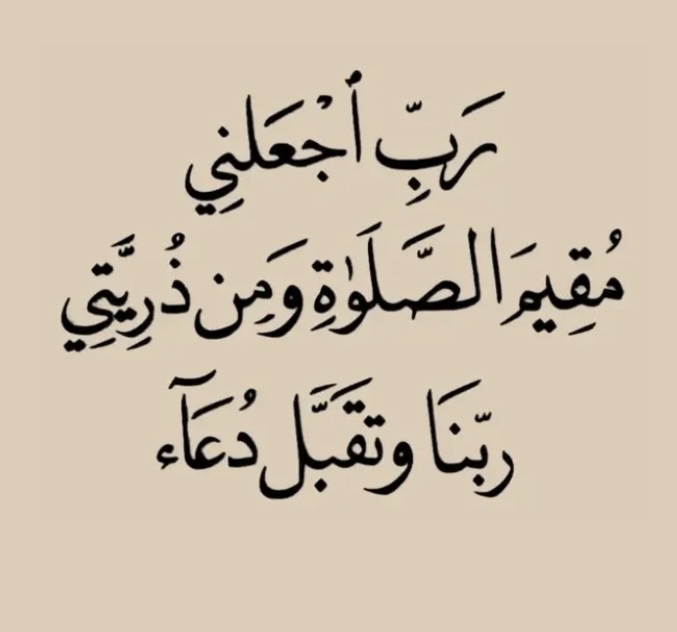 رَبِّ ٱجْعَلنِي
مُقِيمَ الصَّلَوٰةِ وَمِن ذُرِيَّتِي
ربّنَا وتقَبَّل دُعَآء